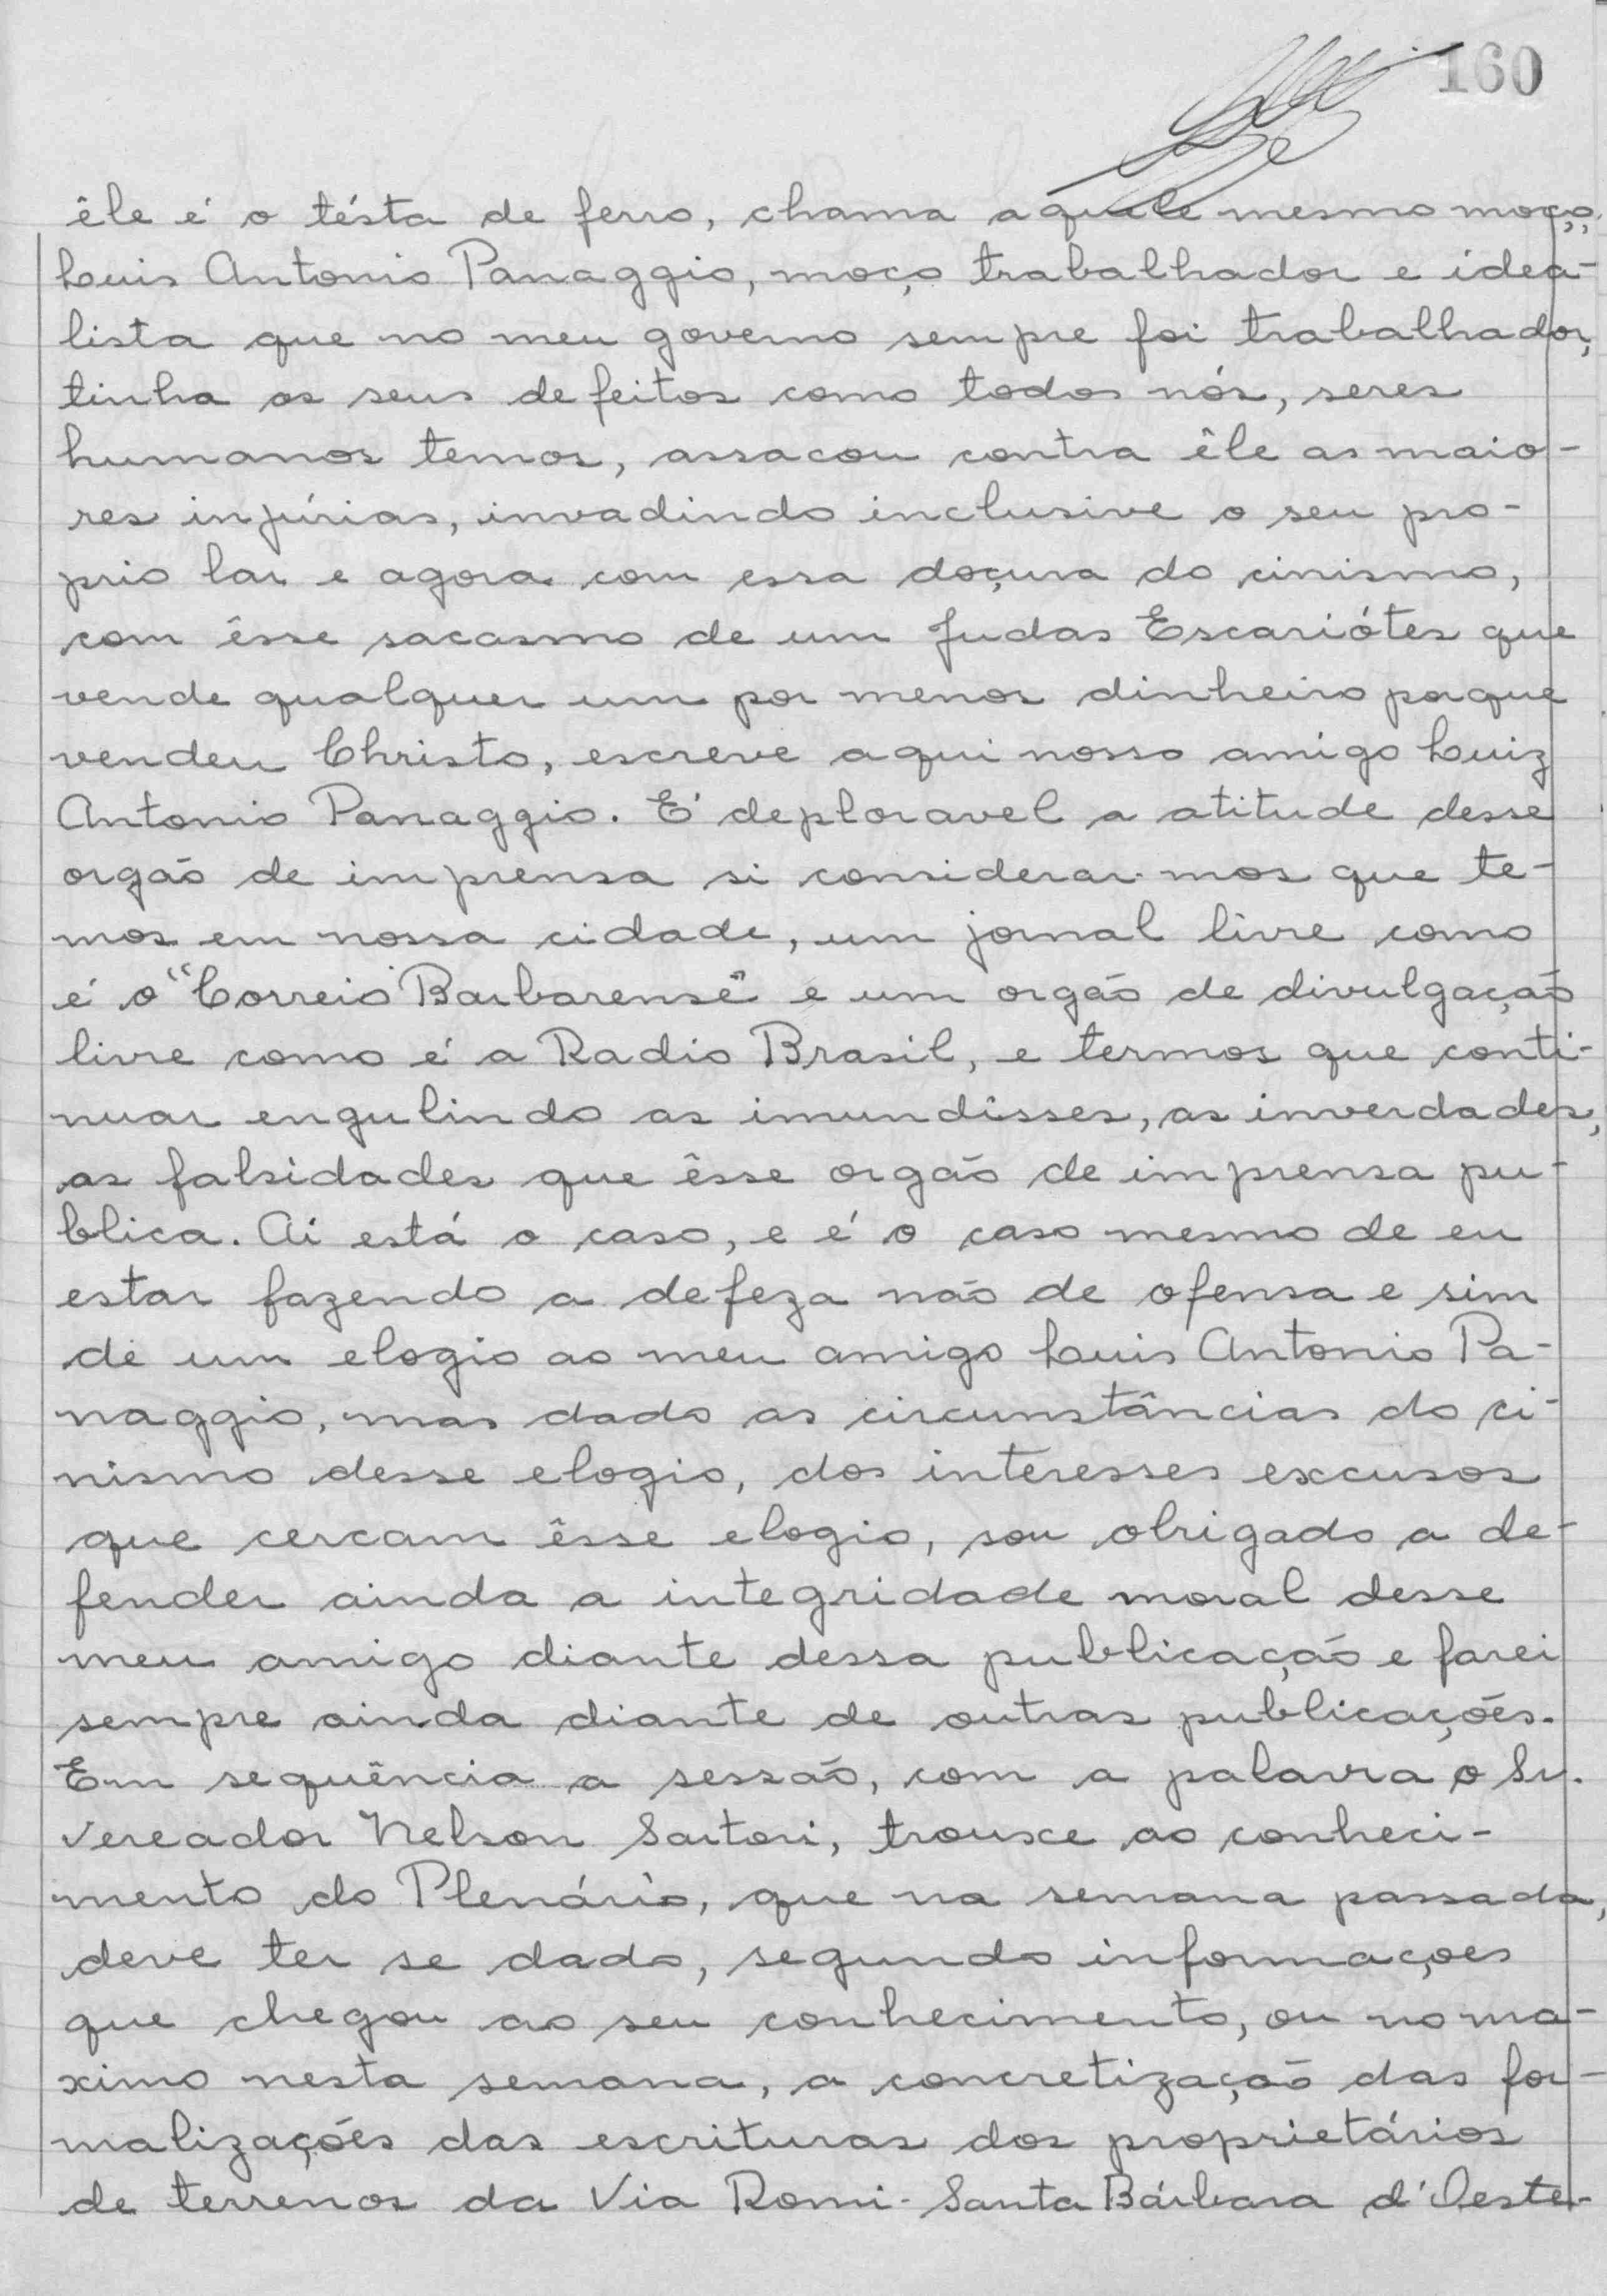 160
êle é o tésta de ferro, chama aquele mesmo moço,
Luis Antonio Panaggio, moço trabalhador e idea-
lista que no meu governo sempre foi trabalhador,
tinha os seus defeitos como todos nós, seres
humanos temos, assacou contra êle as maio-
res injúrias, invadindo inclusive o seu pro-
prio lar e agora com essa doçura do cinismo,
com êsse sacasmo de um Judas Escariótes que
vende qualquer um por menos dinheiro porque
vendeu Christo, escreve aqui nosso amigo Luiz
Antonio Panaggio. É deploravel a atitude desse
orgão de imprensa si considerar-mos que te-
mos em nossa cidade, um jornal livre como
é o "Correio Barbarense" e um orgão de divulgação
livre como é a Radio Brasil, e termos que conti-
nuar engulindo as imundísses, as inverdades,
as falsidades que êsse orgão de imprensa pu-
blica. Ai está o caso, e é o caso mesmo de eu
estar fazendo a defeza não de ofensa e sim
de um elogio ao meu amigo Luis Antonio Pa-
naggio, mas dado as circunstâncias do ci-
nismo desse elogio, dos interesses excusos
que cercam êsse elogio, sou obrigado a de-
fender ainda a integridade moral desse
meu amigo diante dessa publicação e farei
sempre ainda diante de outras publicações.
Em sequência a sessão, com a palavra o Sr.
Vereador Nelson Sartori, trouxe ao conheci-
mento do Plenário, que na semana passada,
deve ter se dado, segundo informaçoes
que chegou ao seu conhecimento, ou no ma-
ximo nesta semana, a concretização das for-
malizações das escrituras dos proprietários
de terrenos da Via Romi-Santa Bárbara d'Oeste.